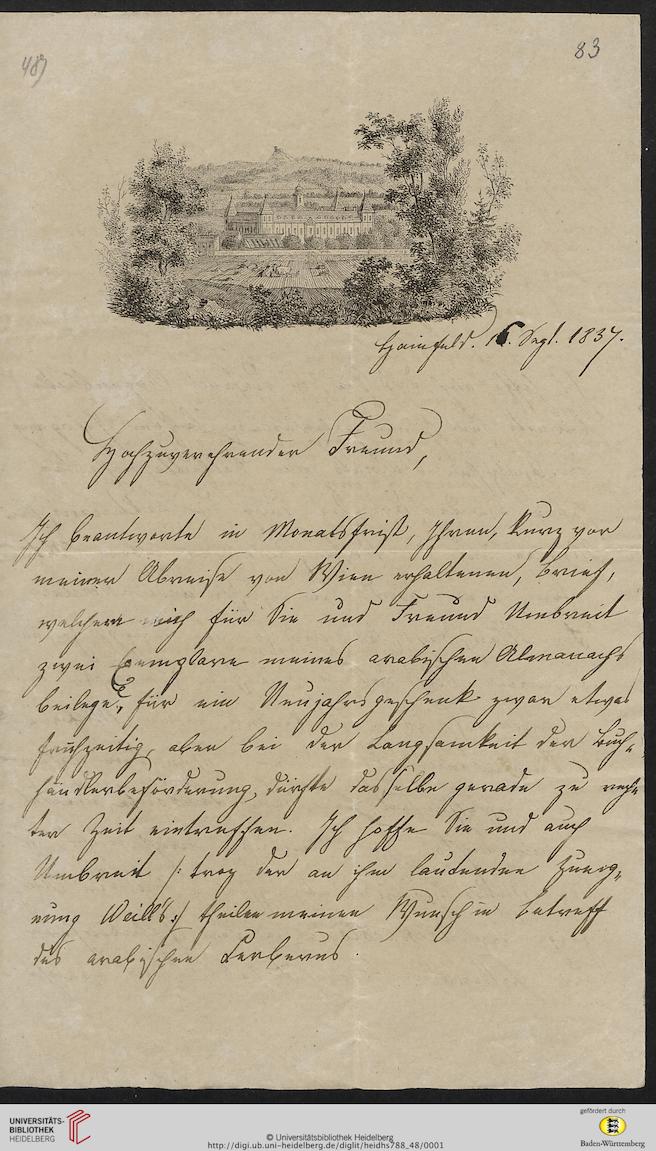 83
487
Hainfeld. 16. Sept. 1837.
Hochzuverehrender Freund,
Ich beantworte in Monatsfrist, Ihren, kurz vor
meiner Abreise von Wien erhaltenen, Brief,
welchem ich für Sie und Freund Umbreit
zwei Exemplare meines arabischen Almanachs
beilege, für ein Neujahrsgeschenk zwar etwas
frühzeitig, aber bei der Langsamkeit der Buch-
händlerbeförderung, dürfte dasselbe gerade zu rech-
ter Zeit eintreffen. Ich hoffe Sie und auch
Umbreit /: troz der an ihn lautenden Zueig-
nung Weill's :/ theilen meinen Wunsch in betreff
des arabischen Cerberus.
UNIVERSITÄTS-
BIBLIOTHEK
HEIDELBERG
© Universitätsbibliothek Heidelberg
http://digi.ub.uni-heidelberg.de/diglit/heidhs788_48/0001
gefördert durch
Baden-Württemberg